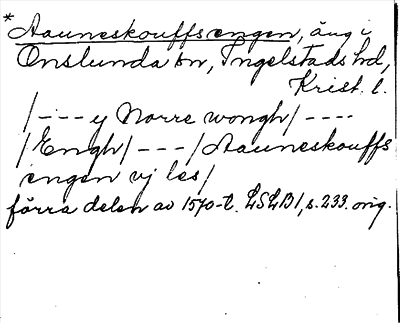 *Aauneskouffsengen, äng i
Onslunda sn, Ingelstads hd,
Krist. l.
/ - - - y Norre wongh / - - - -
/ Engh / - - - / Aauneskouffs
engen vj les /
förra delen av 1570-t. LSLB1, s. 233. orig.